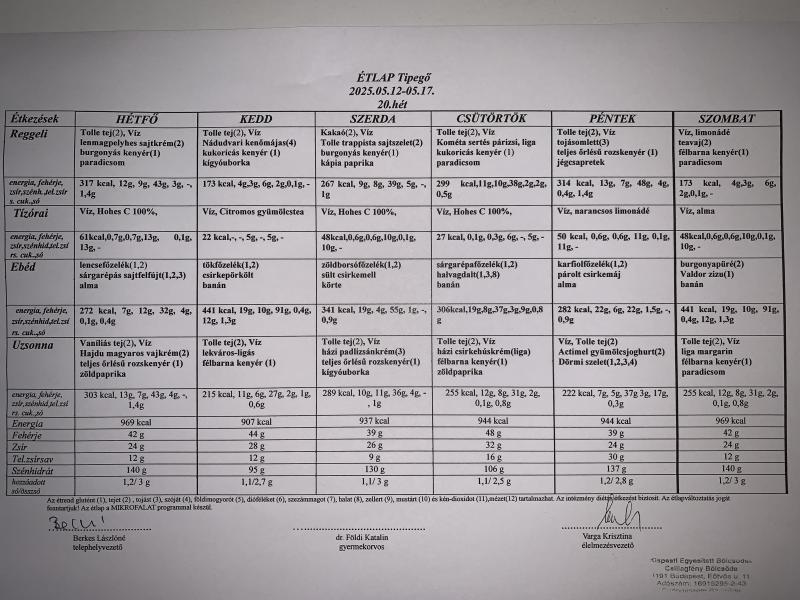 ÉTLAP Tipegő
2025.05.12-05.17.
20.hét
Étkezések HÉTFŐ KEDD SZERDA CSÜTÖRTÖK PÉNTEK SZOMBAT
Reggeli Tolle tej(2), Víz Tolle tej(2), Víz Kakaó(2), Víz Tolle tej(2), Víz Tolle tej(2), Víz Víz, limonádé
lenmagpelyhes sajtkrém(2) Nádudvari kenőmájas(4) Tolle trappista sajtszelet(2) Kométa sertés párizsi, liga tojásomlett(3) teavaj(2)
burgonyás kenyér(1) kukoricás kenyér (1) burgonyás kenyér(1) kukoricás kenyér (1) teljes őrlésű rozskenyér (1) félbarna kenyér (1)
paradicsom kígyóuborka kápia paprika paradicsom jégcsapretek paradicsom
energia, fehérje, 317 kcal, 12g, 9g, 43g, 3g, -, 173 kcal, 4g,3g, 6g, 2g,0,1g, - 267 kcal, 9g, 8g, 39g, 5g, -, 299 kcal,11g,10g,38g,2g,2g, 314 kcal, 13g, 7g, 48g, 4g, 173 kcal, 4g,3g, 6g,
zsír,szénh,tel.zsír 1,4g 1g 0,5g 0,4g, 1,4g 2g,0,1g, -
s. cuk.,só
Tízórai Víz, Hohes C 100%, Víz, Citromos gyümölcstea Víz, Hohes C 100%, Víz, Hohes C 100%, Víz, narancsos limonádé Víz, alma
energia, fehérje, 61kcal,0,7g,0,7g,13g, 0,1g, 22 kcal,-, -, 5g, -, 5g, - 48kcal,0,6g,0,6g,10g,0,1g, 27 kcal, 0,1g, 0,3g, 6g, -, 5g, - 50 kcal, 0,6g, 0,6g, 11g, 0,1g, 48kcal,0,6g,0,6g,10g,0,1g,
zsír,szénhid,tel.zsí 13g, - 10g, - 11g, - 10g, -
rs. cuk.,só
Ebéd lencsefőzelék(1,2) tökfőzelék(1,2) zöldborsófőzelék(1,2) sárgarépafőzelék(1,2) karfiolfőzelék(1,2) burgonyapüré(2)
sárgarépás sajtfelfújt(1,2,3) csirkepörkölt sült csirkemell halvagdalt(1,3,8) párolt csirkemáj Valdor zizu(1)
alma banán körte banán alma banán
energia, fehérje, 272 kcal, 7g, 12g, 32g, 4g, 441 kcal, 19g, 10g, 91g, 0,4g, 341 kcal, 19g, 4g, 55g, 1g, -, 306kcal,19g,8g,37g,3g,9g,0,8 282 kcal, 22g, 6g, 22g, 1,5g, -, 441 kcal, 19g, 10g, 91g,
zsír,szénhid,tel.zsí 0,1g, 0,4g 12g, 1,3g 0,9g g 0,9g 0,4g, 12g, 1,3g
rs. cuk.,só
Uzsonna Vaníliás tej(2), Víz Tolle tej(2), Víz Tolle tej(2), Víz Tolle tej(2), Víz Víz, Tolle tej(2) Tolle tej(2), Víz
Hajdu magyaros vajkrém(2) lekváros-ligás házi padlizsánkrém(3) házi csirkehúskrém(liga) Actimel gyümölcsjoghurt(2) liga margarin
teljes őrlésű rozskenyér (1) félbarna kenyér (1) teljes őrlésű rozskenyér(1) félbarna kenyér (1) Dörmi szelet(1,2,3,4) félbarna kenyér(1)
zöldpaprika kígyóuborka zöldpaprika paradicsom
energia, fehérje, 303 kcal, 13g, 7g, 43g, 4g, -, 215 kcal, 11g, 6g, 27g, 2g, 1g, 289 kcal, 10g, 11g, 36g, 4g, - 255 kcal, 12g, 8g, 31g, 2g, 222 kcal, 7g, 5g, 37g 3g, 17g, 255 kcal, 12g, 8g, 31g, 2g,
zsír,szénhid,tel.zsí 1,4g 0,6g , 1g 0,1g, 0,8g 0,3g 0,1g, 0,8g
rs. cuk.,só
Energia 969 kcal 907 kcal 937 kcal 944 kcal 944 kcal 969 kcal
Fehérje 42 g 44 g 39 g 48 g 39 g 42 g
Zsír 24 g 28 g 26 g 32 g 24 g 24 g
Tel.zsírsav 12 g 12 g 9 g 16 g 30 g 12 g
Szénhidrát 140 g 95 g 130 g 106 g 137 g 140 g
hozzáadott 1,2/ 3 g 1,1/2,7 g 1,1/ 3 g 1,1/ 2,5 g 1,2/ 2,8 g 1,2/ 3 g
só/összső
Az étrend glutént (1), tejet (2) , tojást (3), szóját (4), földimogyorót (5), dióféléket (6), szezámmagot (7), halat (8), zellert (9), mustárt (10) és kén-dioxidot (11),mézet(12) tartalmazhat. Az intézmény diétás étkezést biztosít. Az étlapváltoztatás jogát
fenntartjuk! Az étlap a MIKROFALAT programmal készül.
Berkes Lászlóné dr. Földi Katalin Varga Krisztina
telephelyvezető gyermekorvos élelmezésvezető
Kispesti Egyesített Bölcsődék
Csillagfény Bölcsőde
1191 Budapest, Eötvös u. 11
Adószám: 16915295-2-43